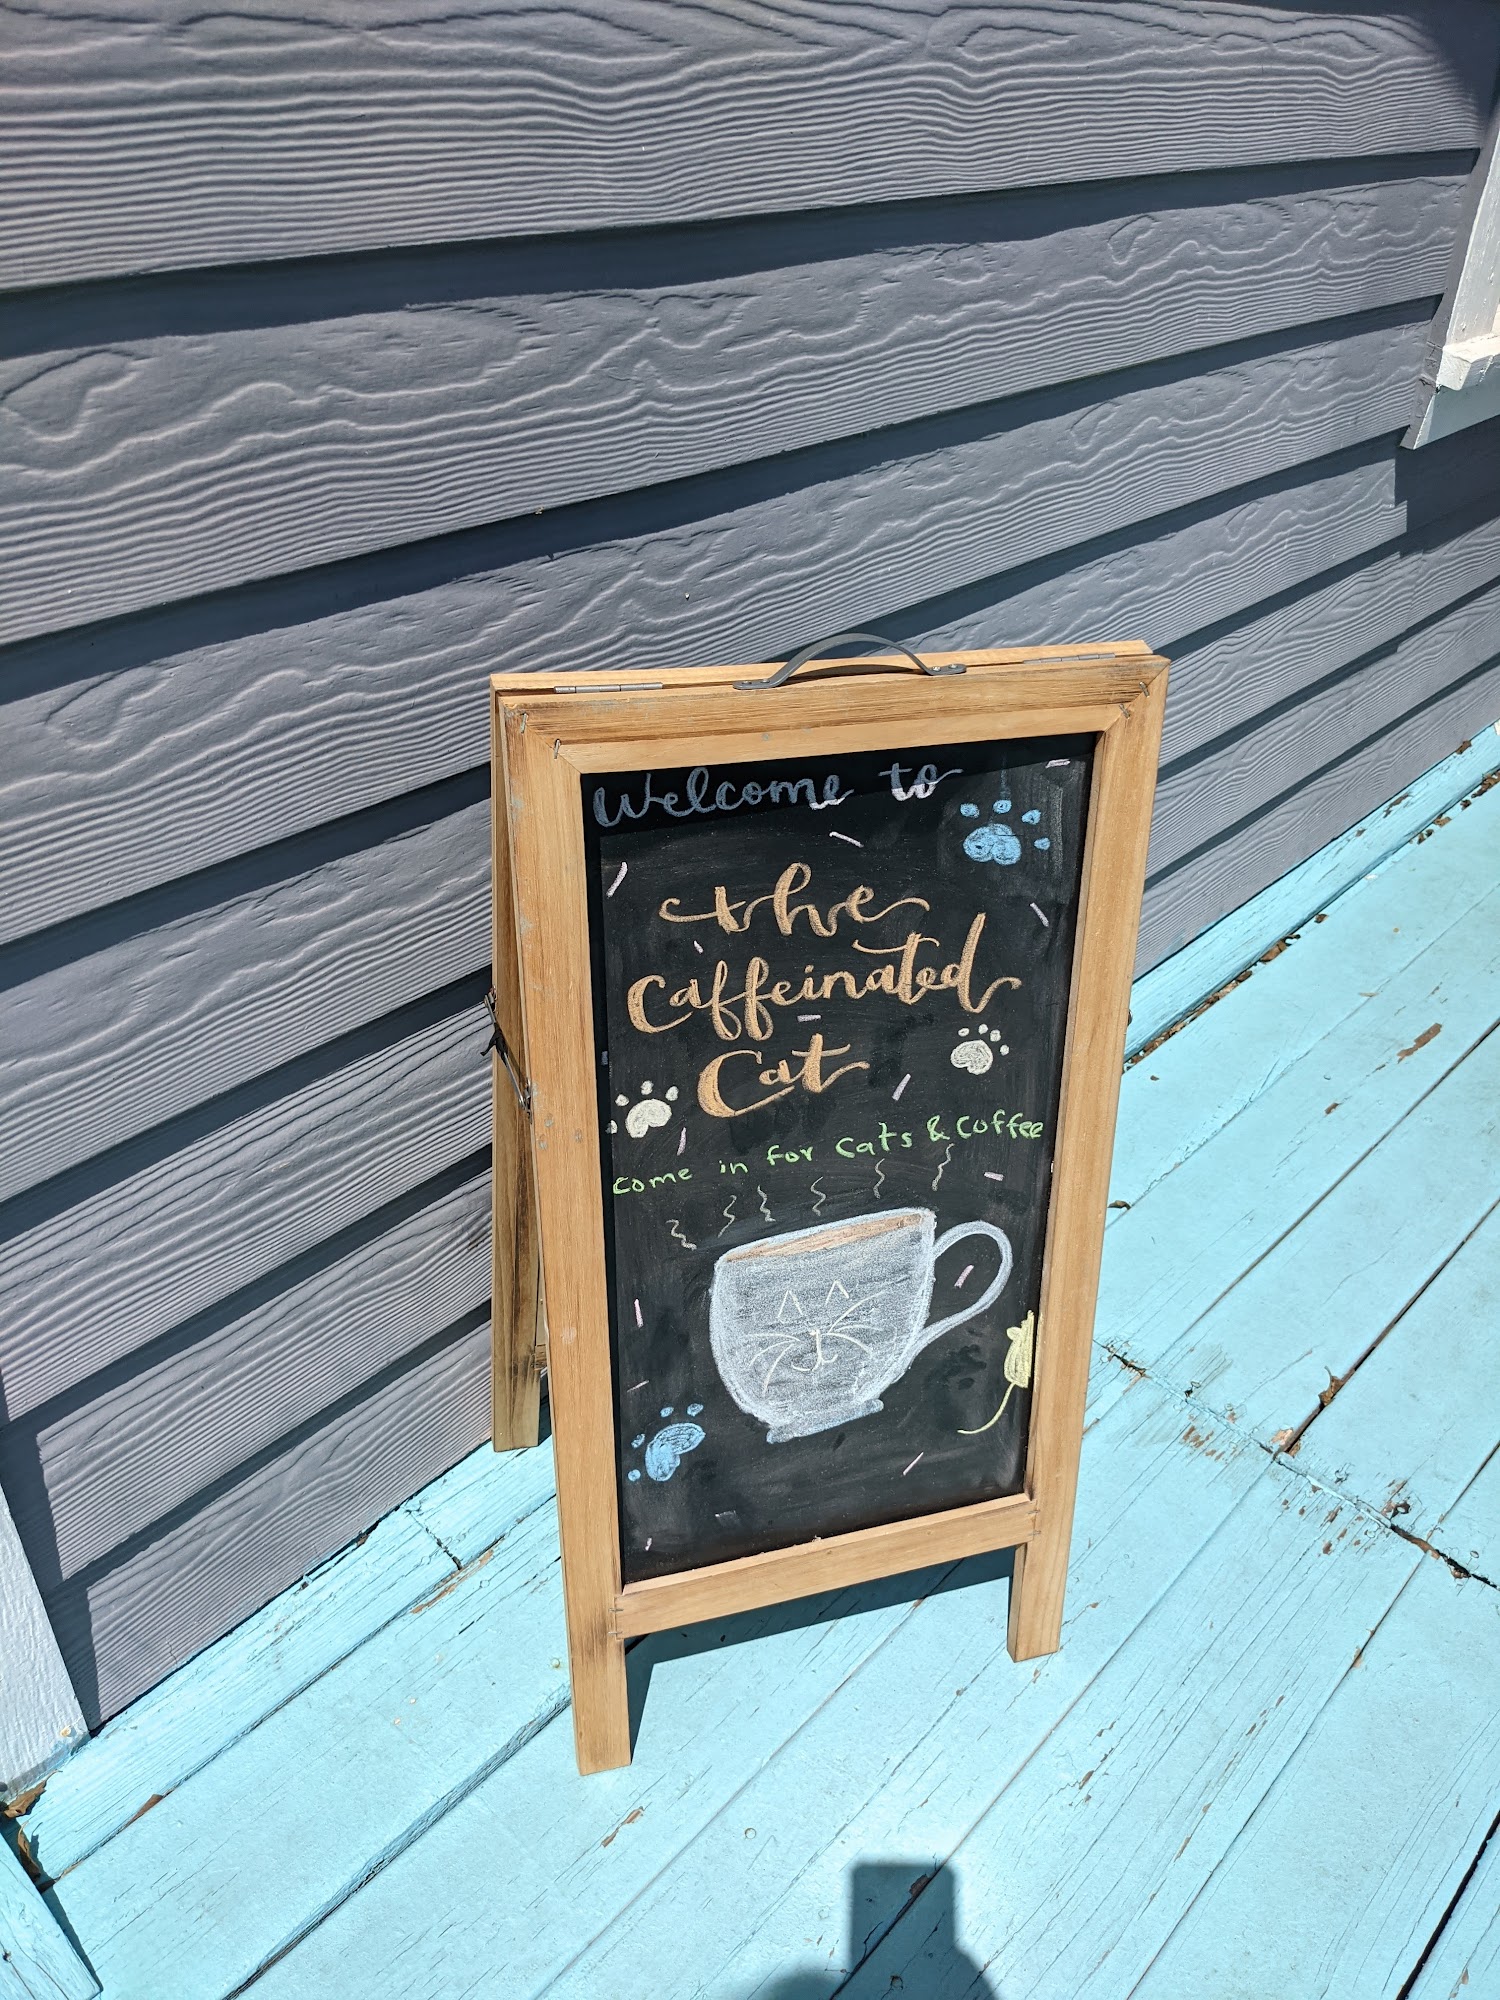 Welcome to
the
Caffeinated
Cat
Come in for Cats & Coffee